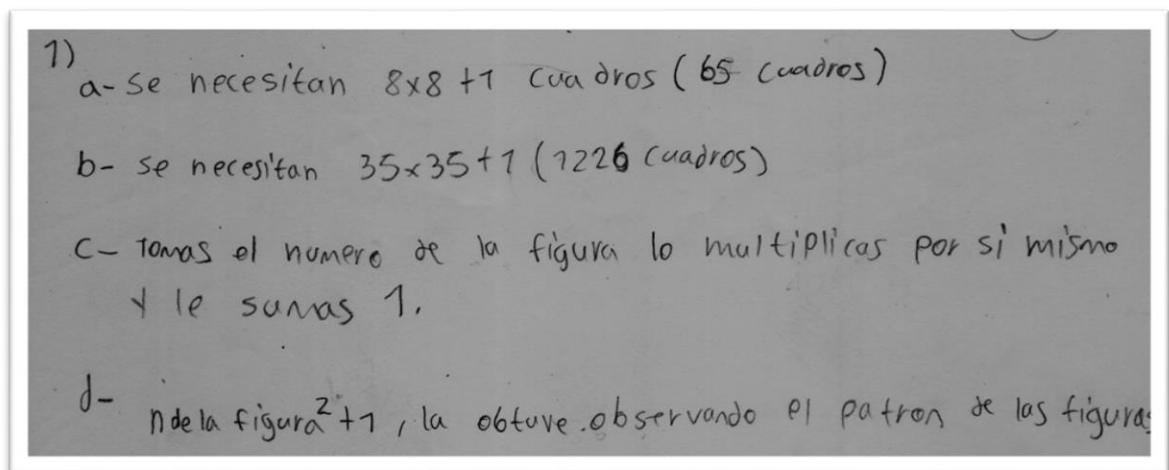 1)
a- se necesitan 8x8 +1 cuadros (65 cuadros)
b- se necesitan 35x35+1 (1226 cuadros)
c- Tomas el numero de la figura lo multiplicas por si mismo
y le sumas 1.
d- n de la figura²+1, la obtuve observando el patron de las figuras